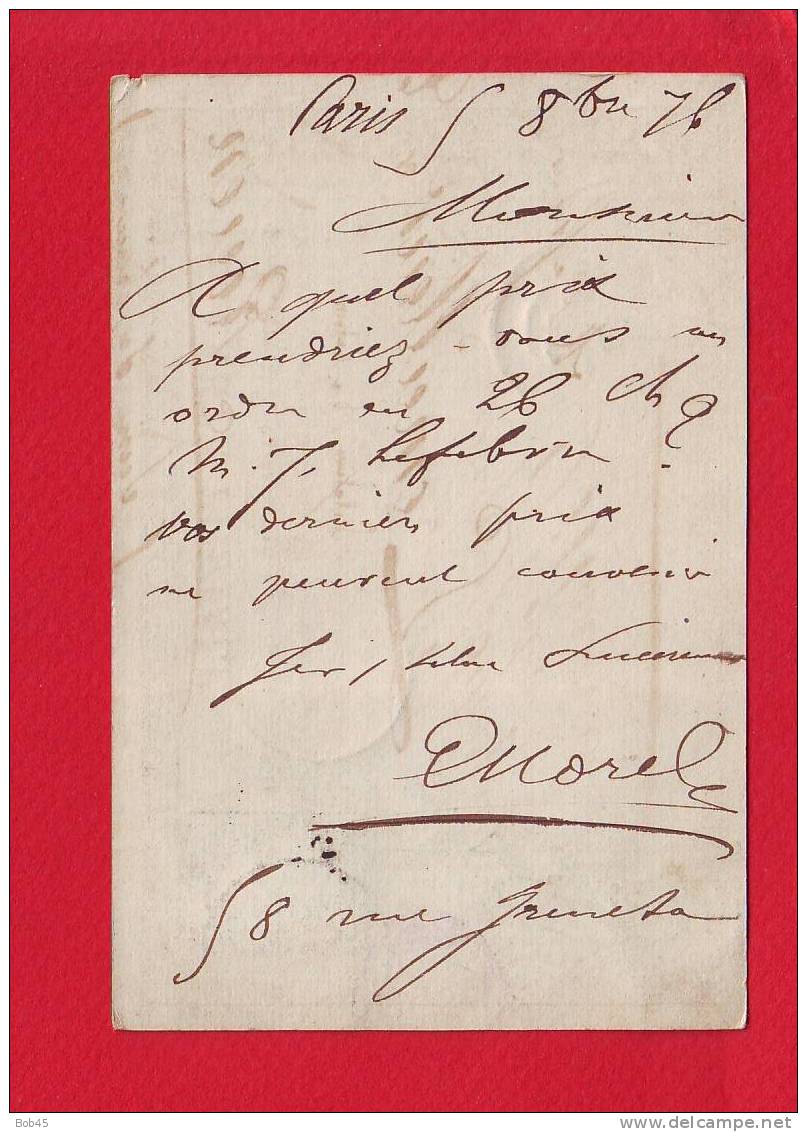 Paris 5 8bre 76
Monsieur
A quel prix
prendriez-vous un
ordre en 26 ch 9
m. J. Lefebvre.
Vos derniers prix
ne peuvent convenir
J'ai l'hr
E Morel
58 rue Greneta
Bob45
delcampe.net